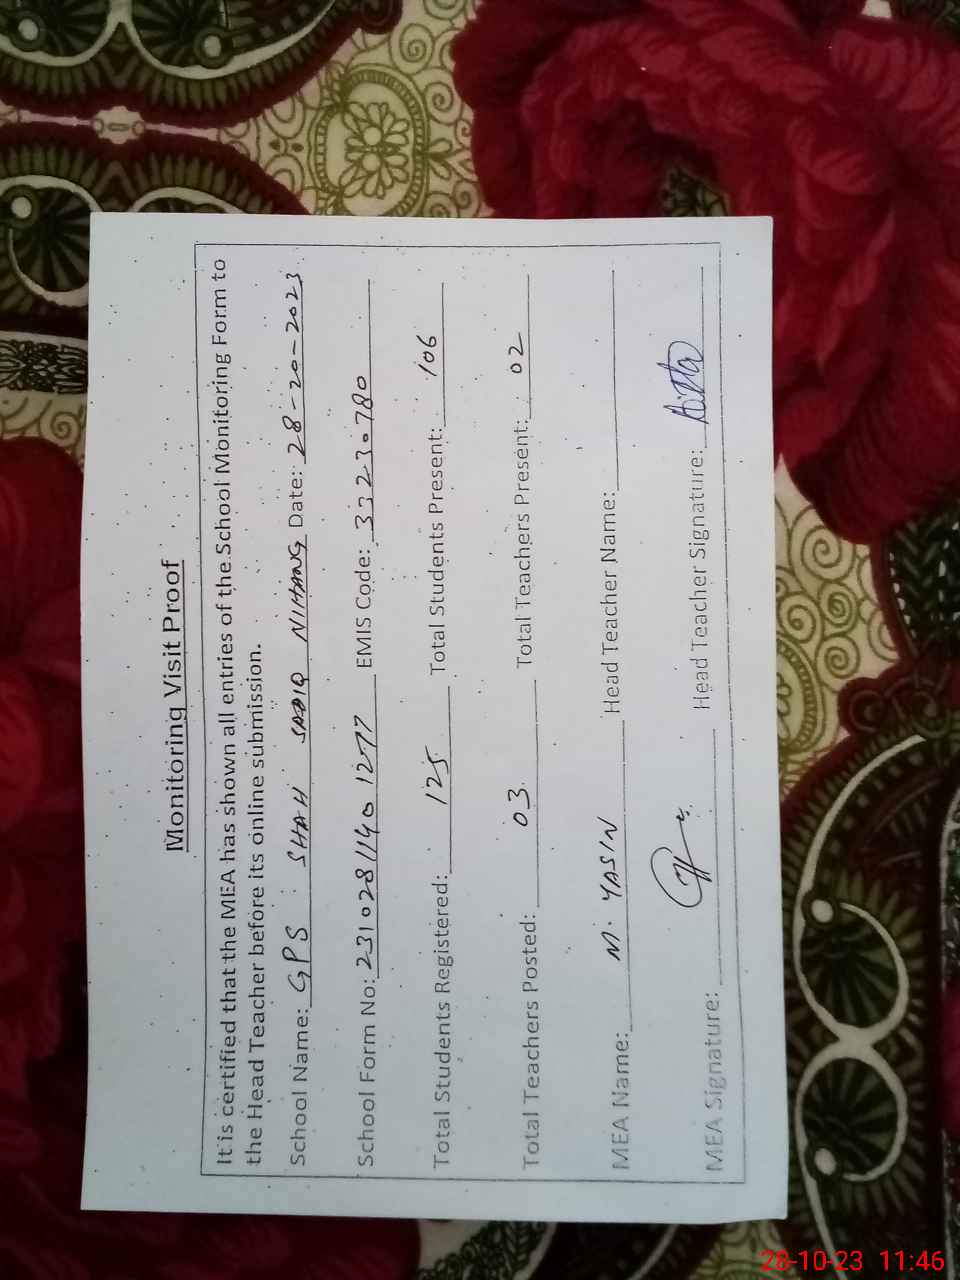 Monitoring Visit Proof
It is certified that the MEA has shown all entries of the School Monitoring Form to
the Head Teacher before its online submission.
School Name: GPS SHAH SADIQ NIHANG Date: 28-20-2023
School Form No: 231028114012577 EMIS Code: 33230780
Total Students Registered: 125 Total Students Present: 106
Total Teachers Posted: 03 Total Teachers Present: 02
MEA Name: M. YASIN Head Teacher Name:
MEA Signature: Head Teacher Signature:
28-10-23 11:46